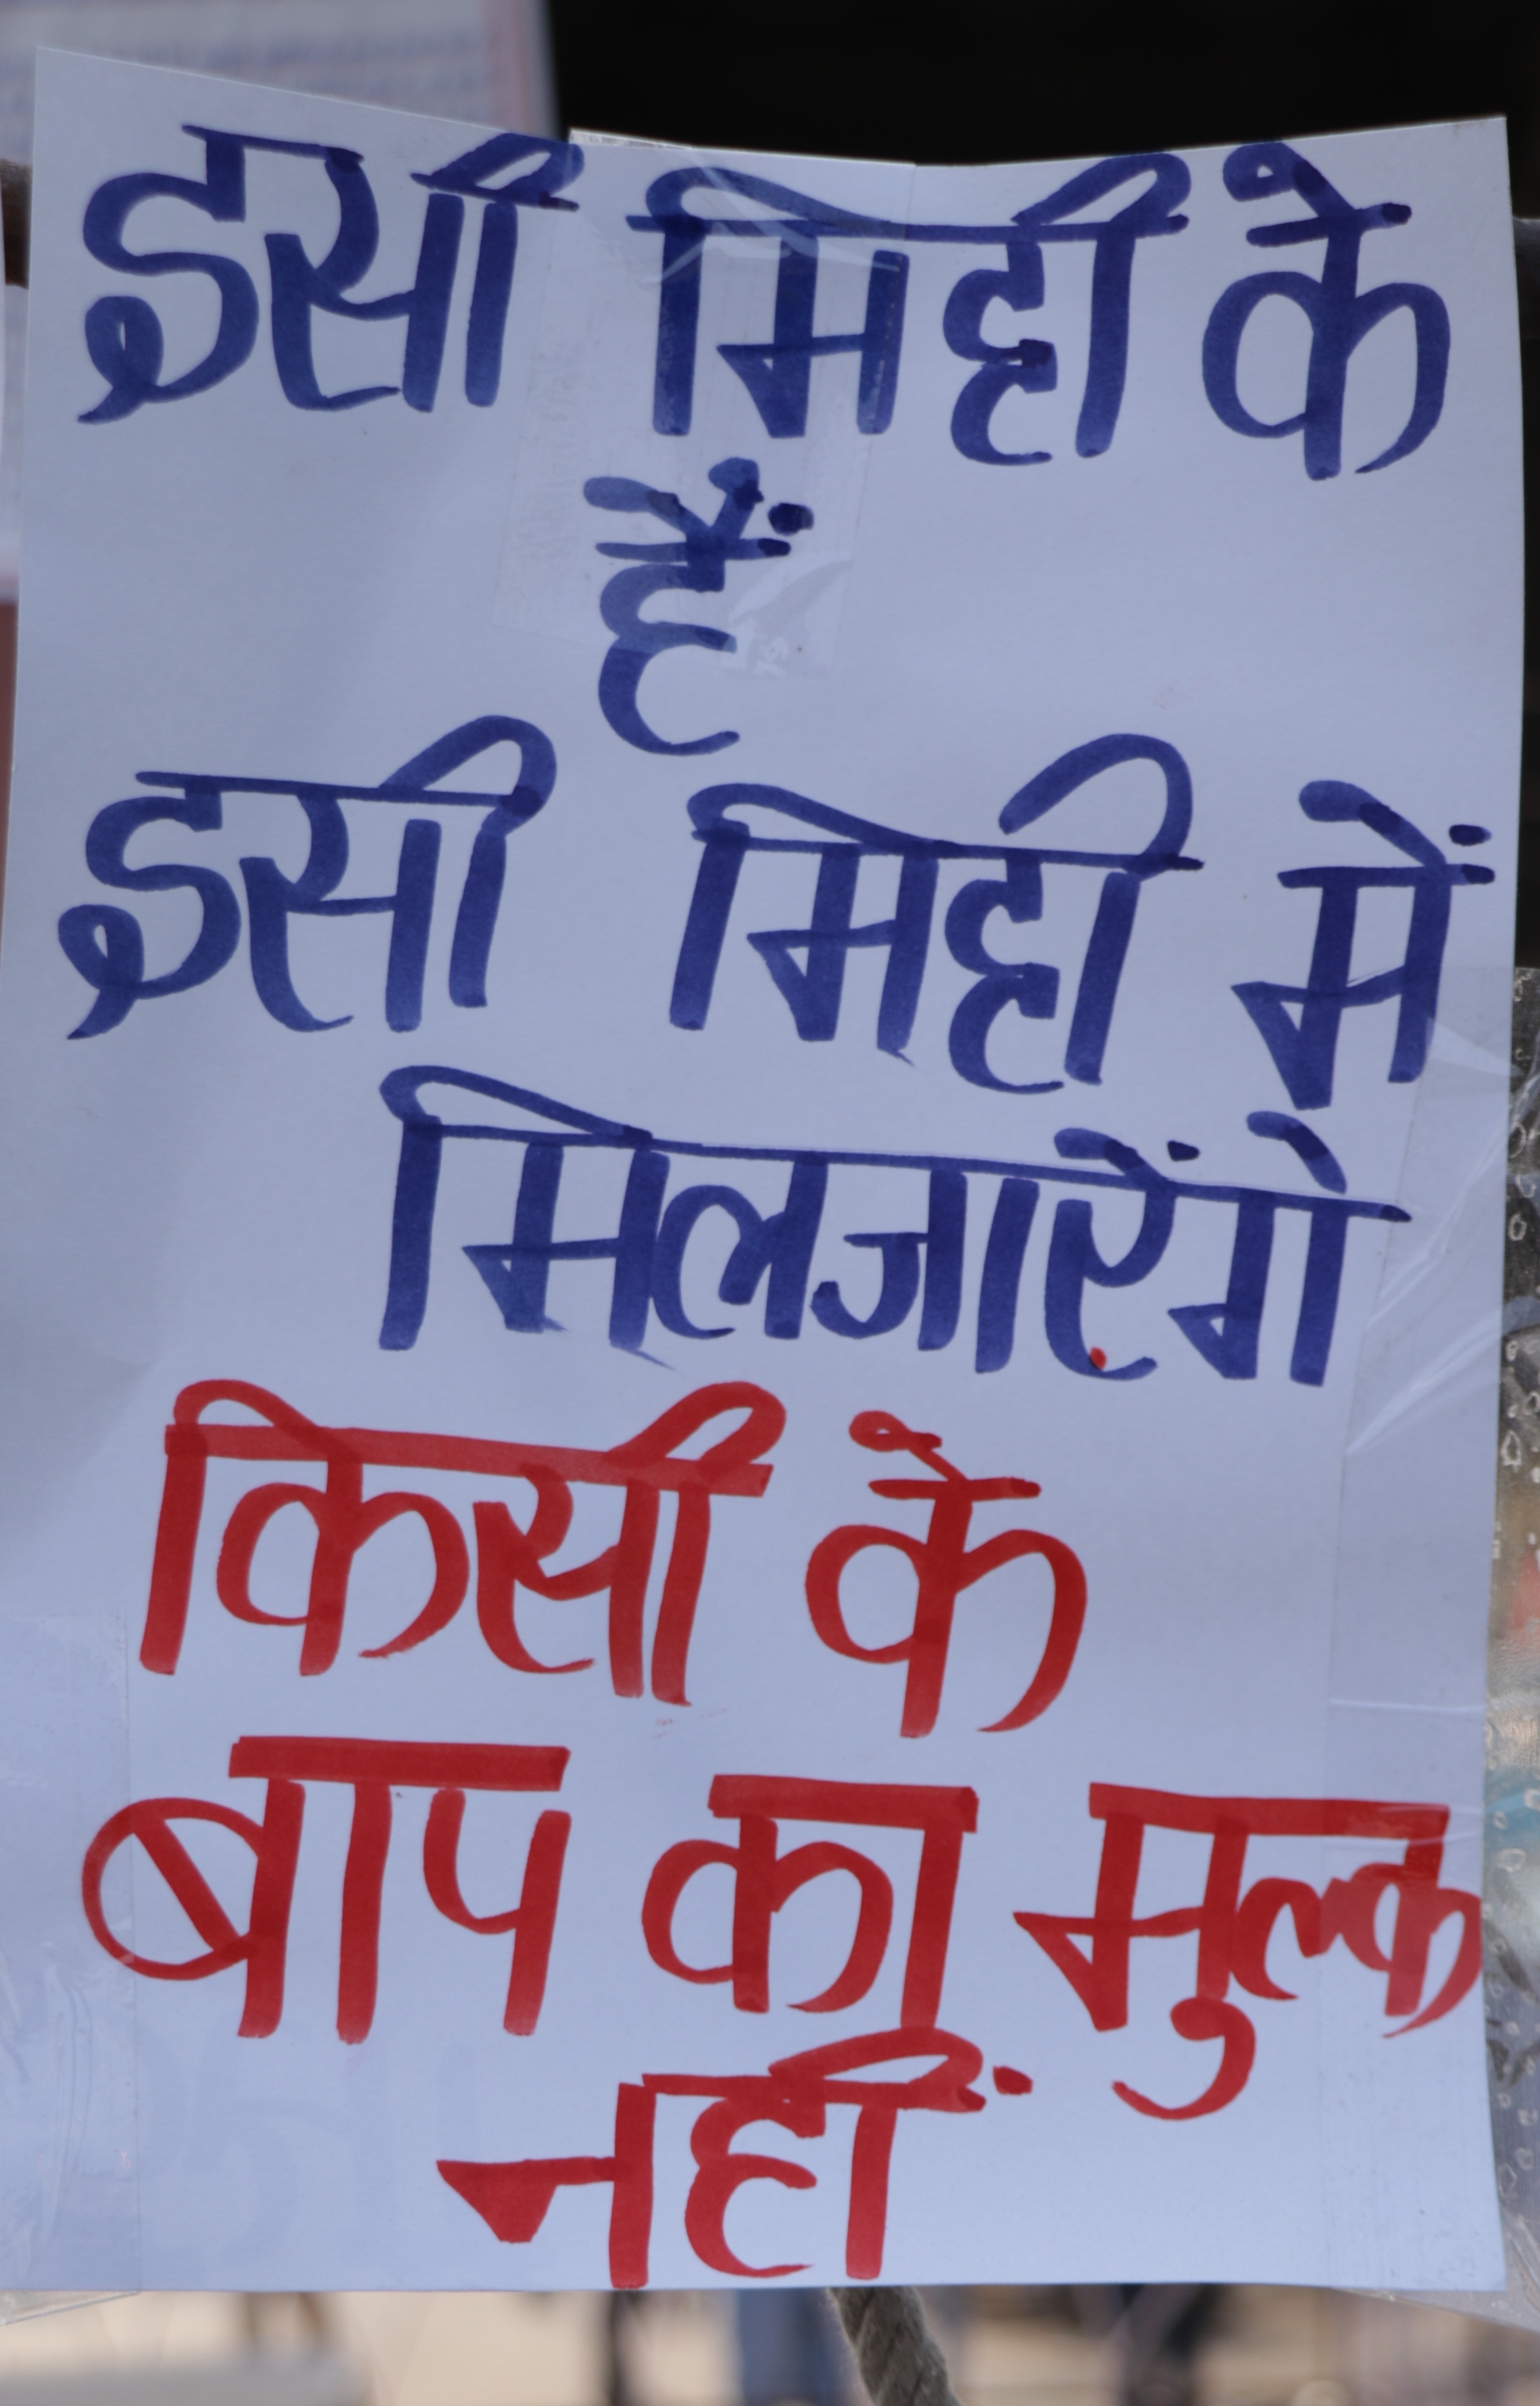 इसी मिट्टी के
हैं
इसी मिट्टी में
मिलजाएंगे
किसी के
बाप का मुल्क
नहीं